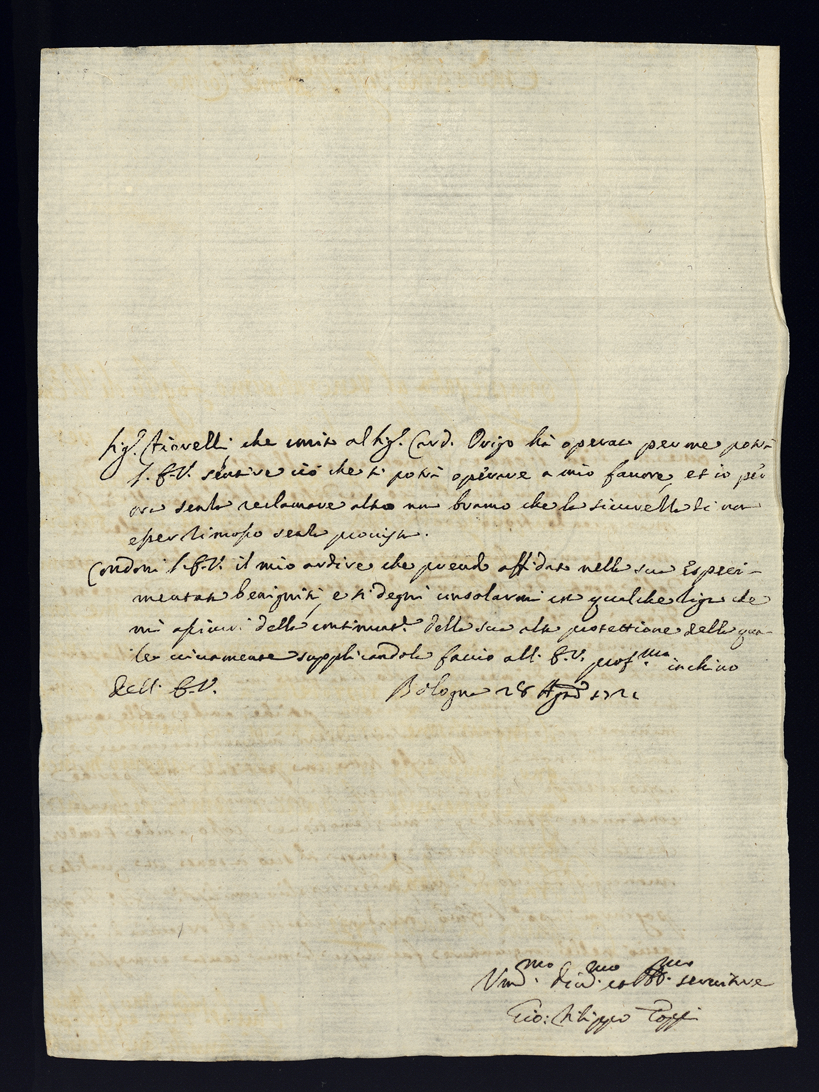 Sig.r Fiorelli che unito al Sig.r Card. Origo hà operato per me potrà
l'E.V. sentire ciò che si potrà operare a mio favore et io per
ora senza reclamare altro non bramo che la sicurezza di non
esser rimosso senza
Condoni l'E.V. il mio ardire che prendo affidato nella sua Esperi-
mentata benignità e si degni consolarmi con qualche riga che
mi assicuri della continuat.e della sua alta protettione della qua-
le vivamente supplicandola faccio all'E.V. prof.mo inchino
Dell'E.V. Bologna 28 Agosto 1721
Um.mo Div.mo et Obb.mo servitore
Gio: Filippo